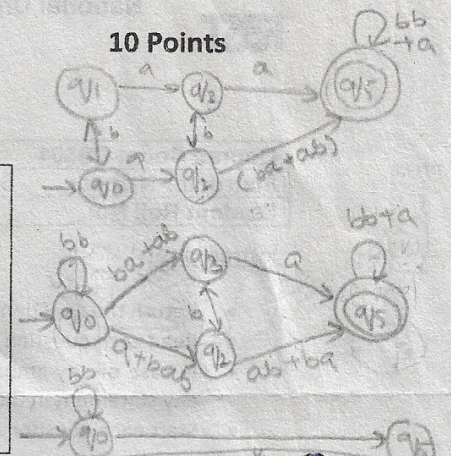 10 Points
bb
+a
q1 a q3 a q5
b b
q0 a q2 (ba+ab)
bb ba+ab q3 a bb+a
q0 b q5
a+bab q2 ab+ba
bb
q0